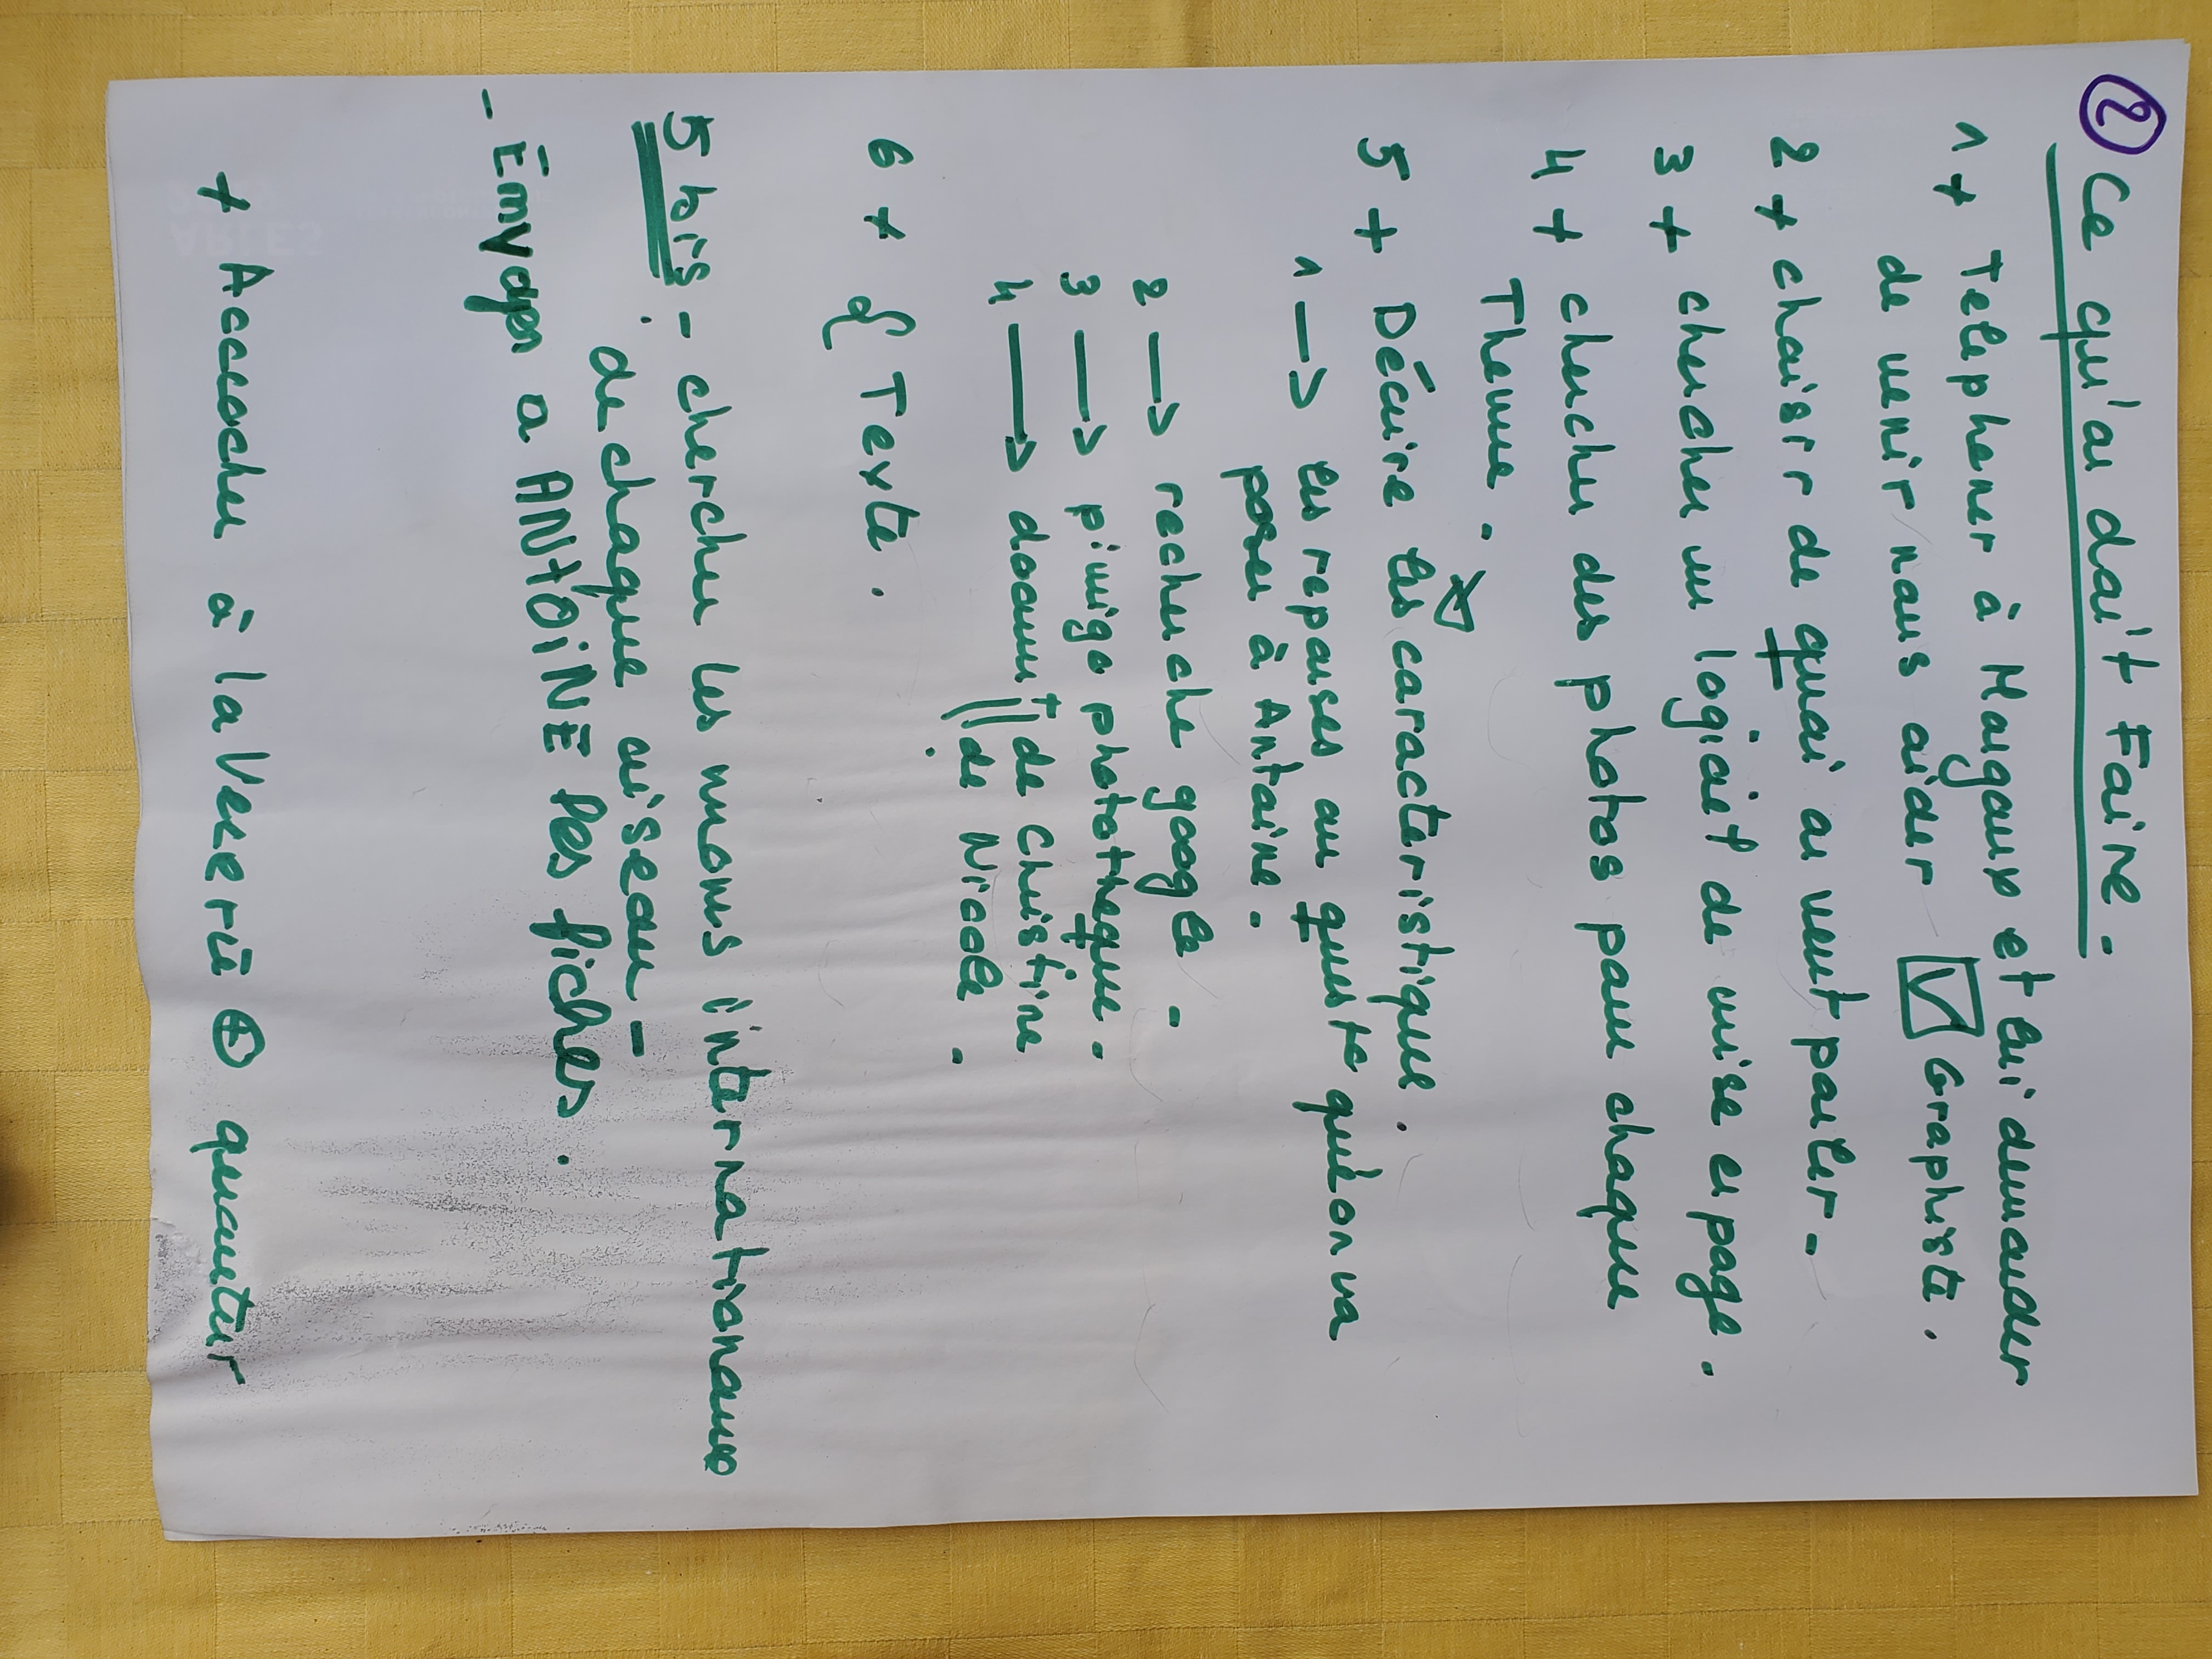 ② Ce qu'on doit Faire -
1 + Telephoner à Margaux et lui demander
de venir nous aider ☑ Graphiste.
2 + choisir de quoi on veut parler -
3 + chercher un logiciel de mise en page.
4 + chercher des photos pour chaque
Theme.
5 + Décrire les caracteristique.
1 → les reponses au questo quel on va
poser à Antoine.
2 → recherche google -
3 → pimigo phototheque -
4 → docum^t de christine
// de Nicole -
6 + Texte.
5 bis - chercher les nuoms internationaux
de chaque oiseau -
- Envoyer a ANTOINE les fiches.
+ Accocher à la Verrerie ⊕ quantier